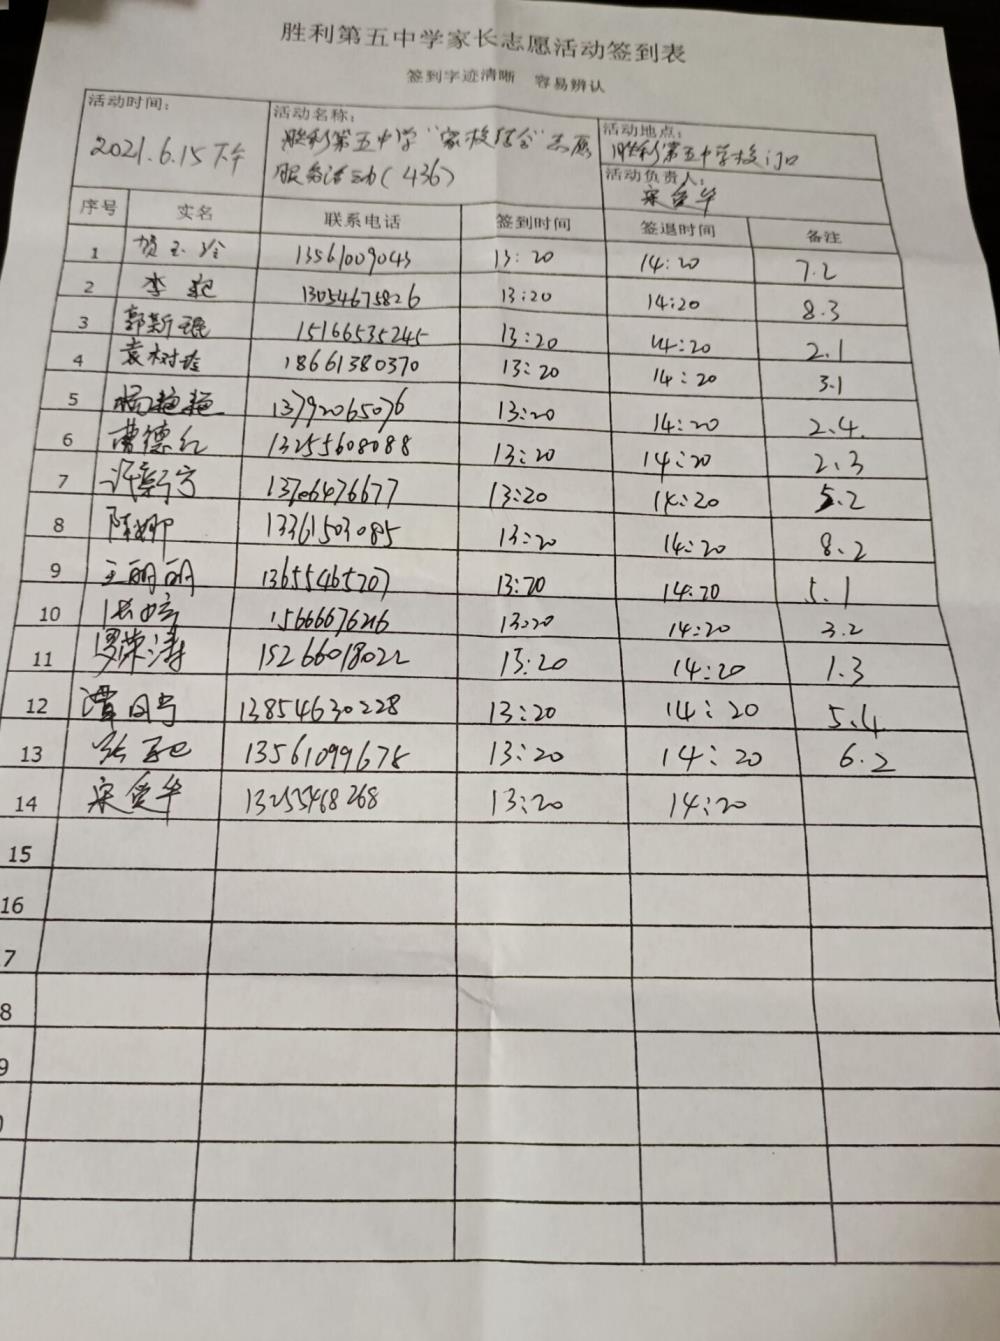 胜利第五中学家长志愿活动签到表
签到字迹清晰 容易辨认
活动时间： 2021.6.15下午
活动名称： 胜利第五中学“家校结合”志愿
服务活动（436）
活动地点： 胜利第五中学校门口
活动负责人： 宋爱华
序号 实名 联系电话 签到时间 签退时间 备注
1 贺玉玲 13561009043 13:20 14:20 7.2
2 李 13054675826 13:20 14:20 8.3
3 郭斯琨 15166535245 13:20 14:20 2.1
4 袁树 18661380370 13:20 14:20 3.1
5 杨艳艳 13792065076 13:20 14:20 2.4
6 曹德红 13255608088 13:20 14:20 2.3
7 许 13706476677 13:20 14:20 5.2
8 陈娜 13361503085 13:20 14:20 8.2
9 王丽丽 13655465707 13:20 14:20 5.1
10 13:20 14:20 3.2
11 罗荣涛 15266018022 13:20 14:20 1.3
12 13854630228 13:20 14:20 5.4
13 张 13561099678 13:20 14:20 6.2
14 宋爱华 13255468268 13:20 14:20
15
16
7
8
9